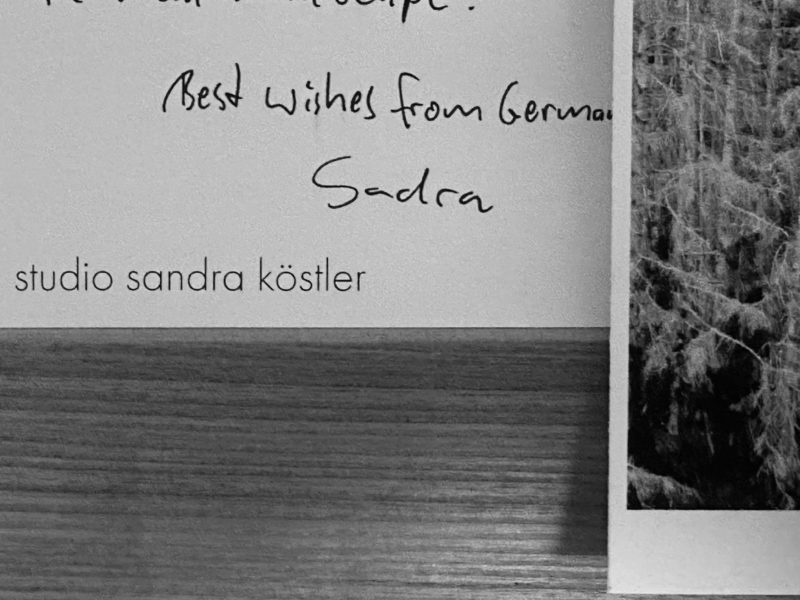 Best wishes from German
Sadra
studio sandra köstler